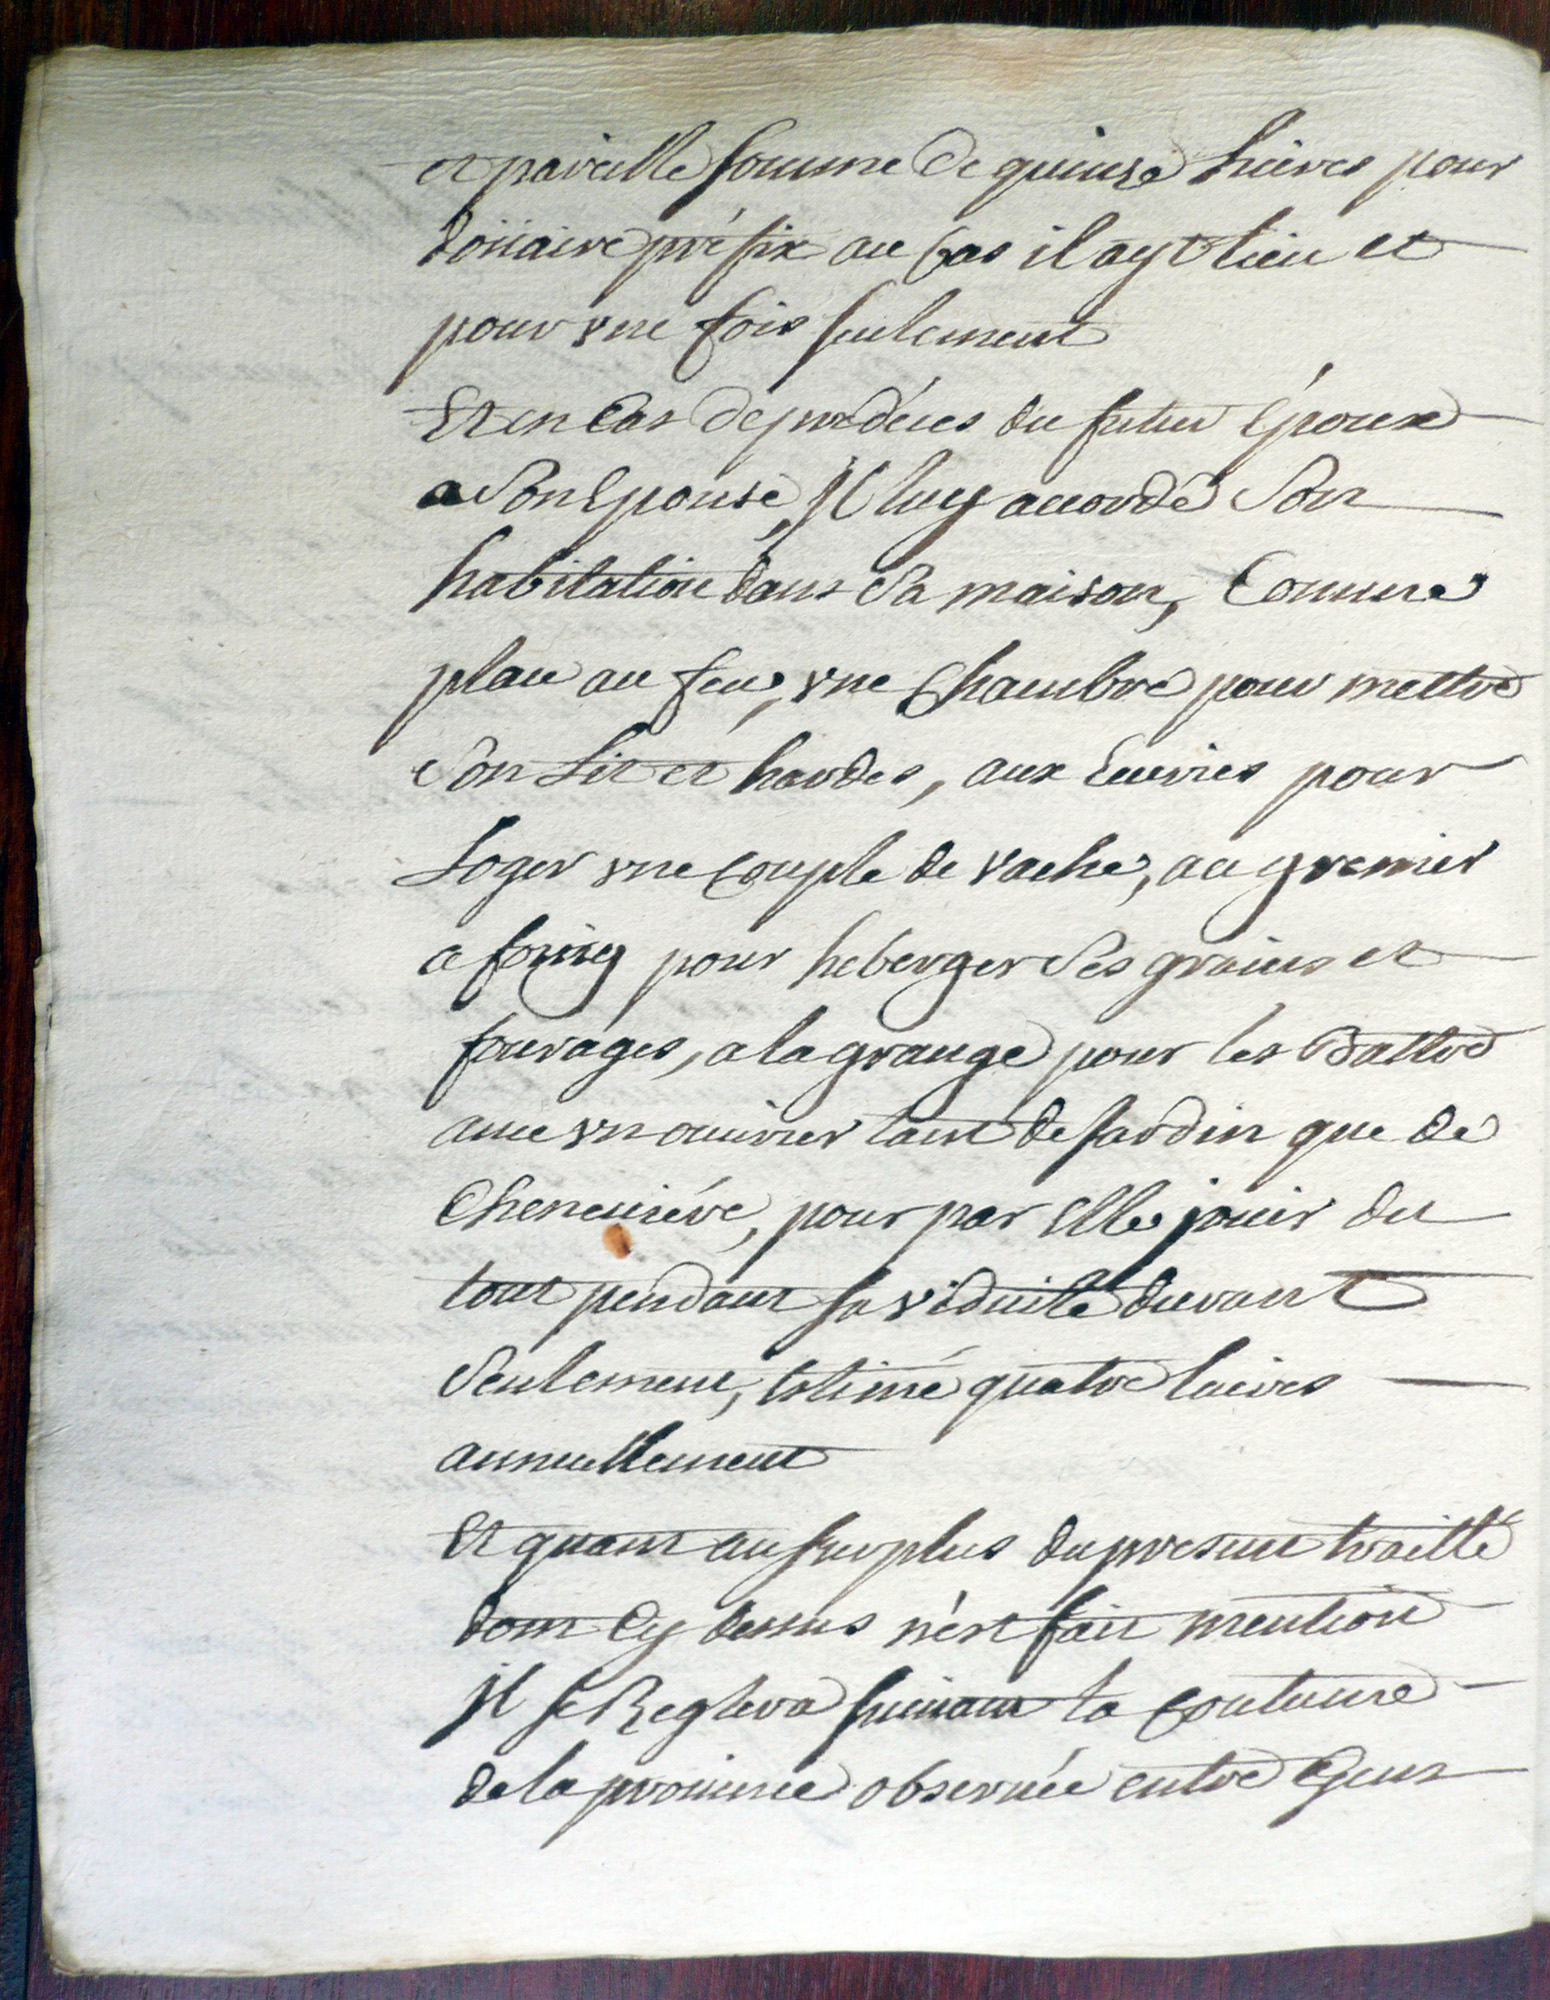 et pareille somme de quinze livres pour
doüaire préfix au Cas il ayt lieu et
pour vne fois seulement
Et en Cas de predéces du futur Époux
a Son Epouse, Jl luy accorde Son
habitation dans Sa maison, Comme
place au feu, vne Chambre pour mettre
Son Lit et hardes, aux Ecuries pour
Loger vne Couple de vache, au grenier
a foing pour heberger Ses grains et
fourages, a la grange pour les Battre
auec vn ouurier tant de Jardin que de
Cheneuiére, pour par Elle jouir du
tout pendant sa viduité durant
Seulement, Estimé quatre liures
annuellement
Et quant au surplus du present traitté
dont Cy dessus n'est fait mention
jl se Reglera suiuant la Coutume
de la prouince obseruée entre Gens